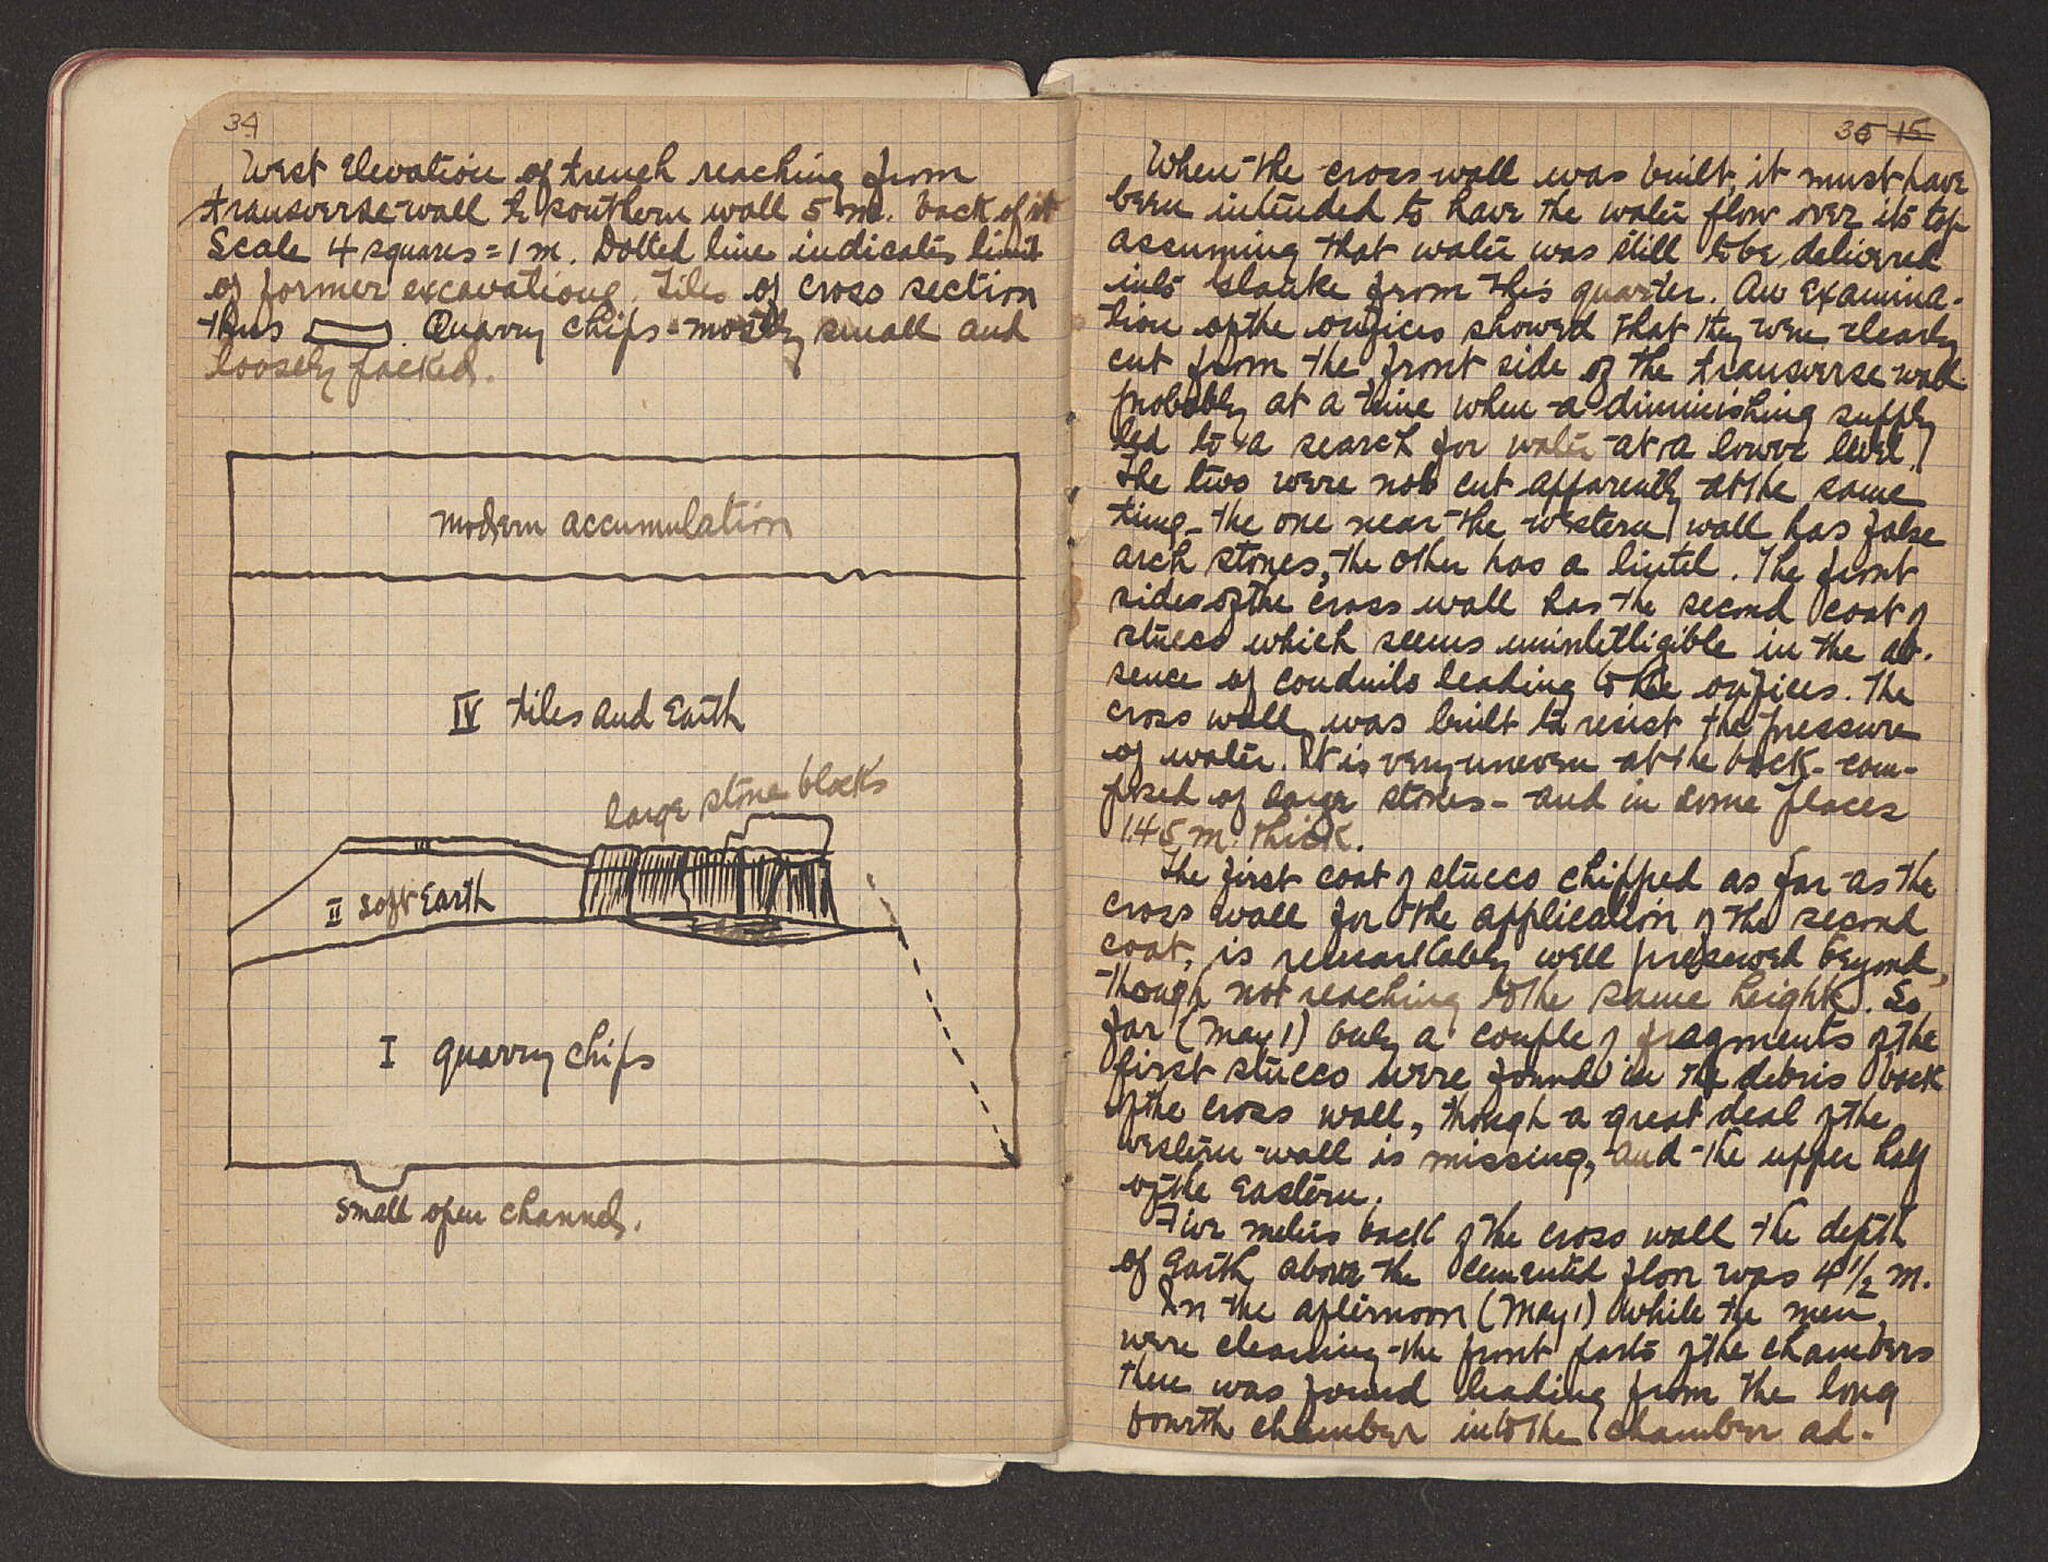 34
West Elevation of trench reaching from
transverse wall to southern wall 5 m. back of it
Scale 4 squares = 1 m. Dotted line indicates limit
of former excavations. Tiles of cross section
thus . Quarry chips = mostly small and
loosely packed.
modern accumulation
IV tiles and Earth
large stone blocks
III
II soft Earth
I quarry chips
small open channel.
35 15
When the cross wall was built, it must have
been intended to have the water flow over its top
assuming that water was still to be delivered
into Glauke from this quarter. An Examina-
tion of the orifices showed that they were clearly
cut from the front side of the transverse wall
probably at a time when a diminishing supply
led to a search for water at a lower level.
The two were not cut apparently at the same
time - the one near the western wall has false
arch stones, the other has a lintel. The front
side of the cross wall has the second coat of
stucco which seems unintelligible in the ab-
sence of conduits leading to the orifices. The
cross wall was built to resist the pressure
of water. It is very uneven at the back - com-
posed of large stones - and in some places
1.45 m. thick.
The first coat of stucco chipped as far as the
cross wall for the application of the second
coat, is remarkably well preserved beyond,
though not reaching to the same height. So
far (May 1) only a couple of fragments of the
first stucco were found in the debris back
of the cross wall, though a great deal of the
western wall is missing, and the upper half
of the Eastern.
Five meters back of the cross wall the depth
of Earth above the cemented floor was 4 1/2 m.
In the afternoon (May 1) while the men
were cleaning the front parts of the chambers
there was found leading from the long
fourth chamber into the chamber ad-